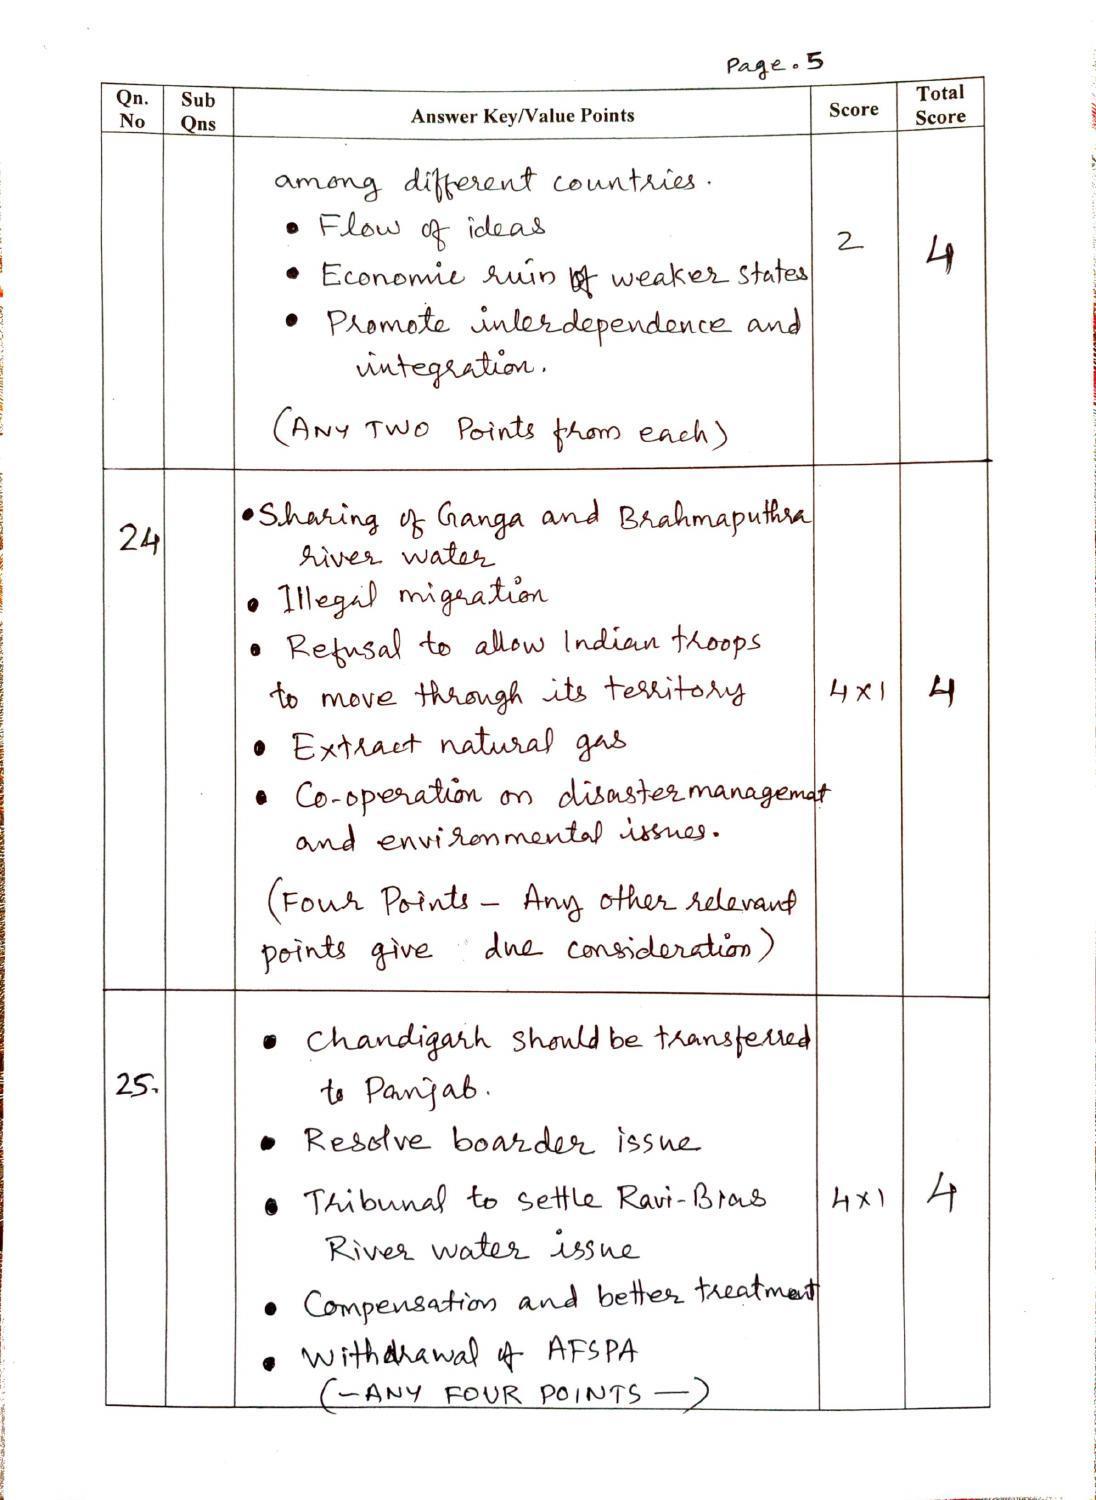 Page. 5
Qn. No
Sub Qns
Answer Key/Value Points
Score
Total Score
among different countries.
• Flow of ideas
• Economic ruin of weaker states
• Promote interdependence and
integration.
(ANY TWO Points from each)
2
4
24
• Sharing of Ganga and Brahmaputhra
river water
• Illegal migration
• Refusal to allow Indian troops
to move through its territory
• Extract natural gas
• Co-operation on disaster managemat
and environmental issues.
(Four Points – Any other relevant
points give due consideration)
4 x 1
4
25.
• Chandigarh should be transferred
to Panjab.
• Resolve boarder issue
• Tribunal to settle Ravi-Bias
River water issue
• Compensation and better treatment
• Withdrawal of AFSPA
(– ANY FOUR POINTS –)
4 x 1
4